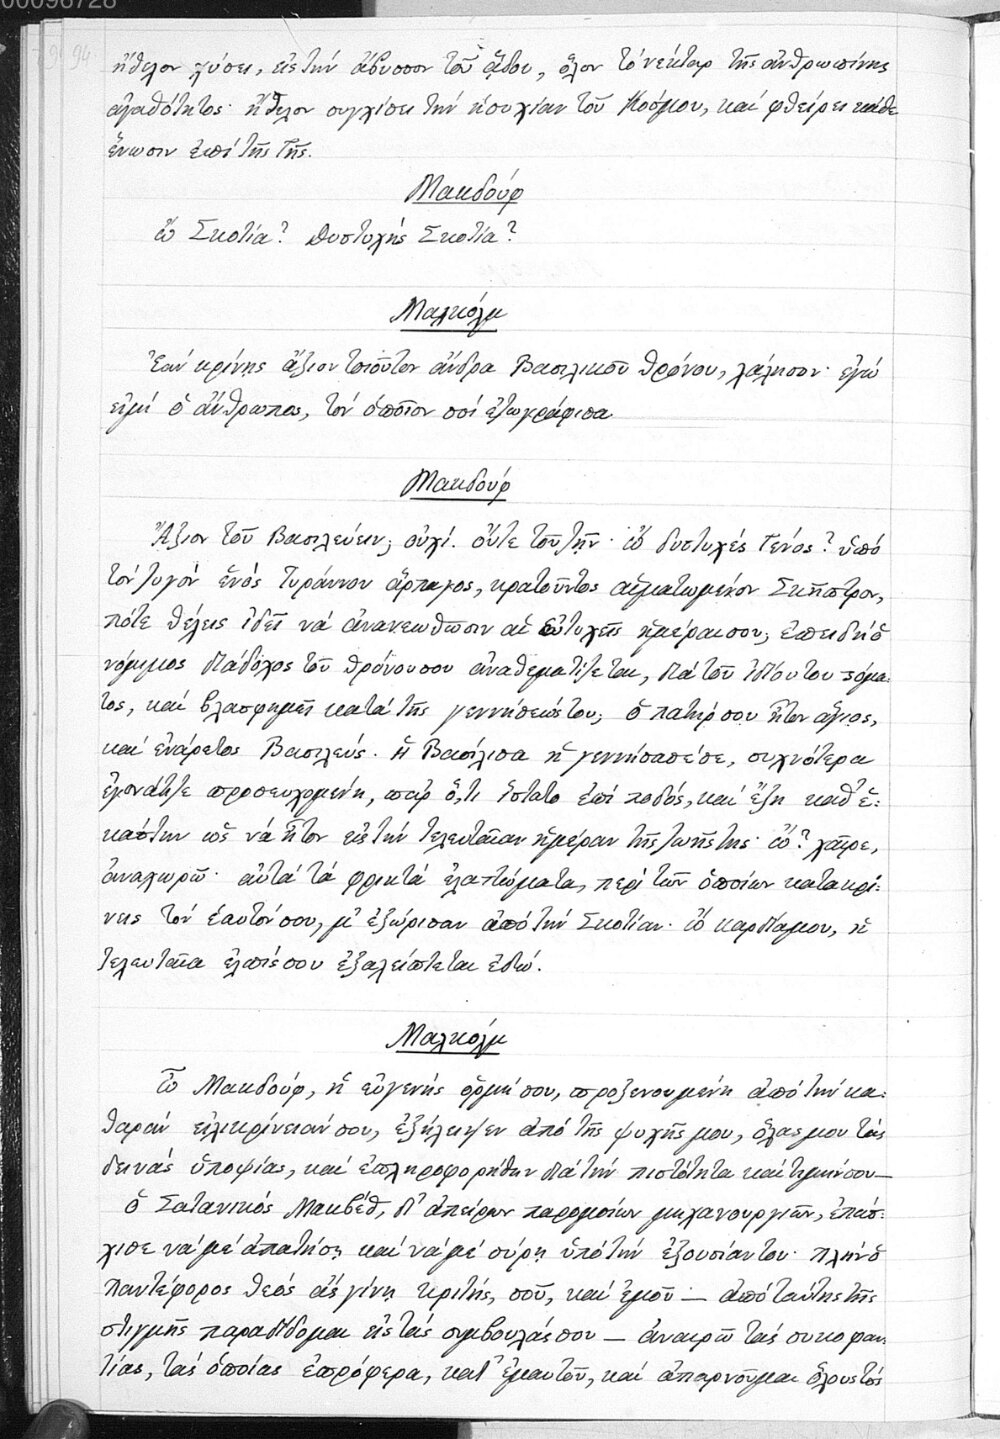 00096728
94
ἤθελον χύσει, εἰς τὴν ἄβυσσον τοῦ ᾅδου, ὅλον τὸ νέκταρ τῆς ἀνθρωπίνης
ἀγαθότητος· ἤθελον συγχίσει τὴν ἡσυχίαν τοῦ Κόσμου, καὶ φθείρει κάθε
ἕνωσιν ἐπὶ τῆς Γῆς.
Μακδούφ
ὦ Σκοτία? δυστυχὴς Σκοτία?
Μαλκόλμ
Ἐὰν κρίνῃς ἄξιον τοιοῦτον ἄνδρα Βασιλικοῦ θρόνου, λάλησον· ἐγὼ
εἰμὶ ὁ ἄνθρωπος, τὸν ὁποῖον σοὶ ἐζωγράφισα
Μακδούφ
Ἄξιον τοῦ Βασιλεύειν; οὐχί. οὔτε τοῦ ζῇν· ὦ δυστυχὲς Γένος? ὑπὸ
τὸν ζυγὸν ἑνὸς Τυράννου ἅρπαγος, κρατοῦντος αἱματωμένον Σκῆπτρον,
πότε θέλεις ἰδεῖ νὰ ἀνανεωθῶσιν αἱ εὐτυχεῖς ἡμέραι σου; ἐπειδὴ ὁ
νόμιμος διάδοχος τοῦ θρόνου σου ἀναθεματίζεται, διὰ τοῦ ἰδίου του στόμα:
τος, καὶ βλασφημεῖ κατὰ τῆς γεννήσεώς του; ὁ πατήρ σου ἦτον ἅγιος,
καὶ ἐνάρετος Βασιλεύς· ἡ Βασίλισα ἡ γεννήσασέ σε, συχνότερα
ἐγονάτιζε προσευχομένη, παρ' ὅ,τι ἵστατο ἐπὶ ποδός, καὶ ἔζη καθ' ἑ:
κάστην ὡς νὰ ἦτον εἰς τὴν τελευταίαν ἡμέραν τῆς ζωῆς της· ὦ? χαῖρε,
ἀναχωρῶ· αὐτὰ τὰ φρικτὰ ἐλαττώματα, περὶ τῶν ὁποίων κατακρί:
νεις τὸν ἑαυτόν σου, μ' ἐξώρισαν ἀπὸ τὴν Σκοτίαν· ὦ καρδία μου, ἡ
τελευταία ἐλπίς σου ἐξαλείπτεται ἐδώ.
Μαλκόλμ
ὦ Μακδούφ, ἡ εὐγενὴς ὁρμή σου, προξενουμένη ἀπὸ τὴν κα:
θαρὰν εἰλικρίνειάν σου, ἐξήλειψεν ἀπὸ τῆς ψυχῆς μου, ὅλας μου τὰς
δεινὰς ὑποψίας, καὶ ἐπληροφορήθην διὰ τὴν πιστότητα καὶ τιμήν σου —
ὁ Σατανικὸς Μακβέθ, δι' ἀπείρων παρομοίων μηχανουργιῶν, ἐπάσ:
χισε νὰ μὲ ἀπατήσῃ καὶ νὰ μὲ σύρῃ ὑπὸ τὴν ἐξουσίαν του· πλὴν ὁ
παντέφορος θεὸς ἂς γίνῃ κριτής, σοῦ, καὶ ἐμοῦ — ἀπὸ ταύτης τῆς
στιγμῆς παραδίδομαι εἰς τὰς συμβουλάς σου — ἀναιρῶ τὰς συκοφαν:
τίας, τὰς ὁποίας ἐπρόφερα, κατ' ἐμαυτοῦ, καὶ ἀπαρνοῦμαι ὅλους τοὺς